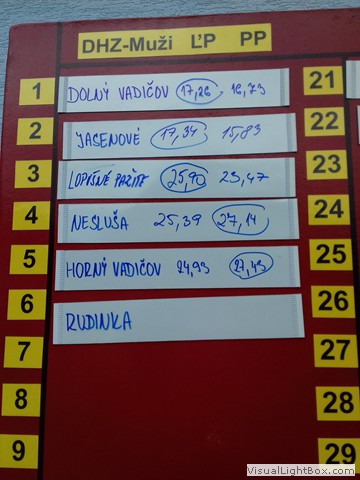 DHZ-Muži ĽP PP
1 DOLNÝ VADIČOV 17,26 16,73 21
2 JASENOVÉ 17,34 15,83 22
3 LOPUŠNÉ PAŽITE 25,90 23,47 23
4 NESLUŠA 25,39 27,14 24
5 HORNÝ VADIČOV 24,93 27,43 25
6 RUDINKA 26
7 27
8 28
9 29
www.VisualLightBox.com